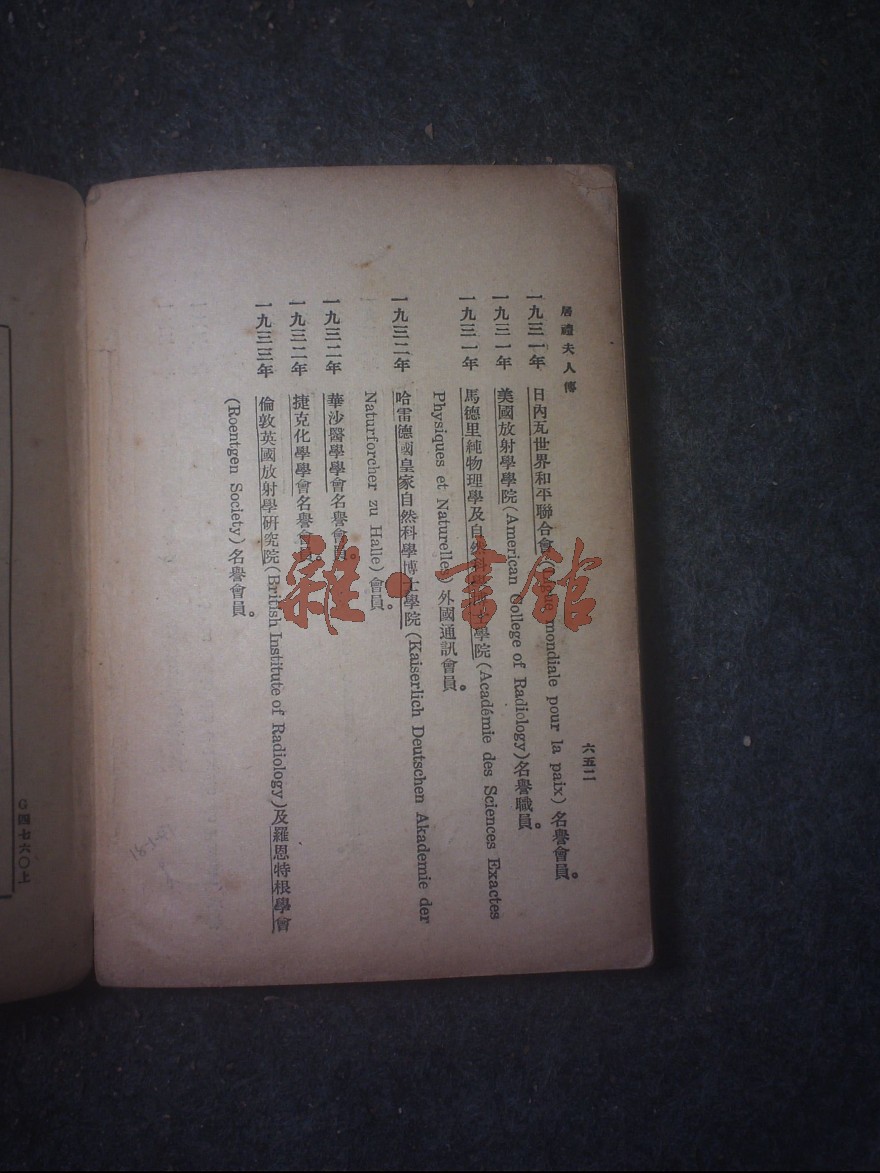 居禮夫人傳
六五二
一九三一年 日內瓦世界和平聯合會 mondiale pour la paix) 名譽會員。
一九三一年 美國放射學學院(American College of Radiology)名譽職員。
一九三一年 馬德里純物理學及自然學院(Académie des Sciences Exactes
Physiques et Naturelles) 外國通訊會員。
一九三二年 哈雷德國皇家自然科學博士學院(Kaiserlich Deutschen Akademie der
Naturforcher zu Halle) 會員。
一九三二年 華沙醫學學會名譽會員。
一九三二年 捷克化學學會名譽會員。
一九三三年 倫敦英國放射學研究院(British Institute of Radiology)及羅恩特根學會
(Roentgen Society) 名譽會員。
G四七六〇上
雜·書館